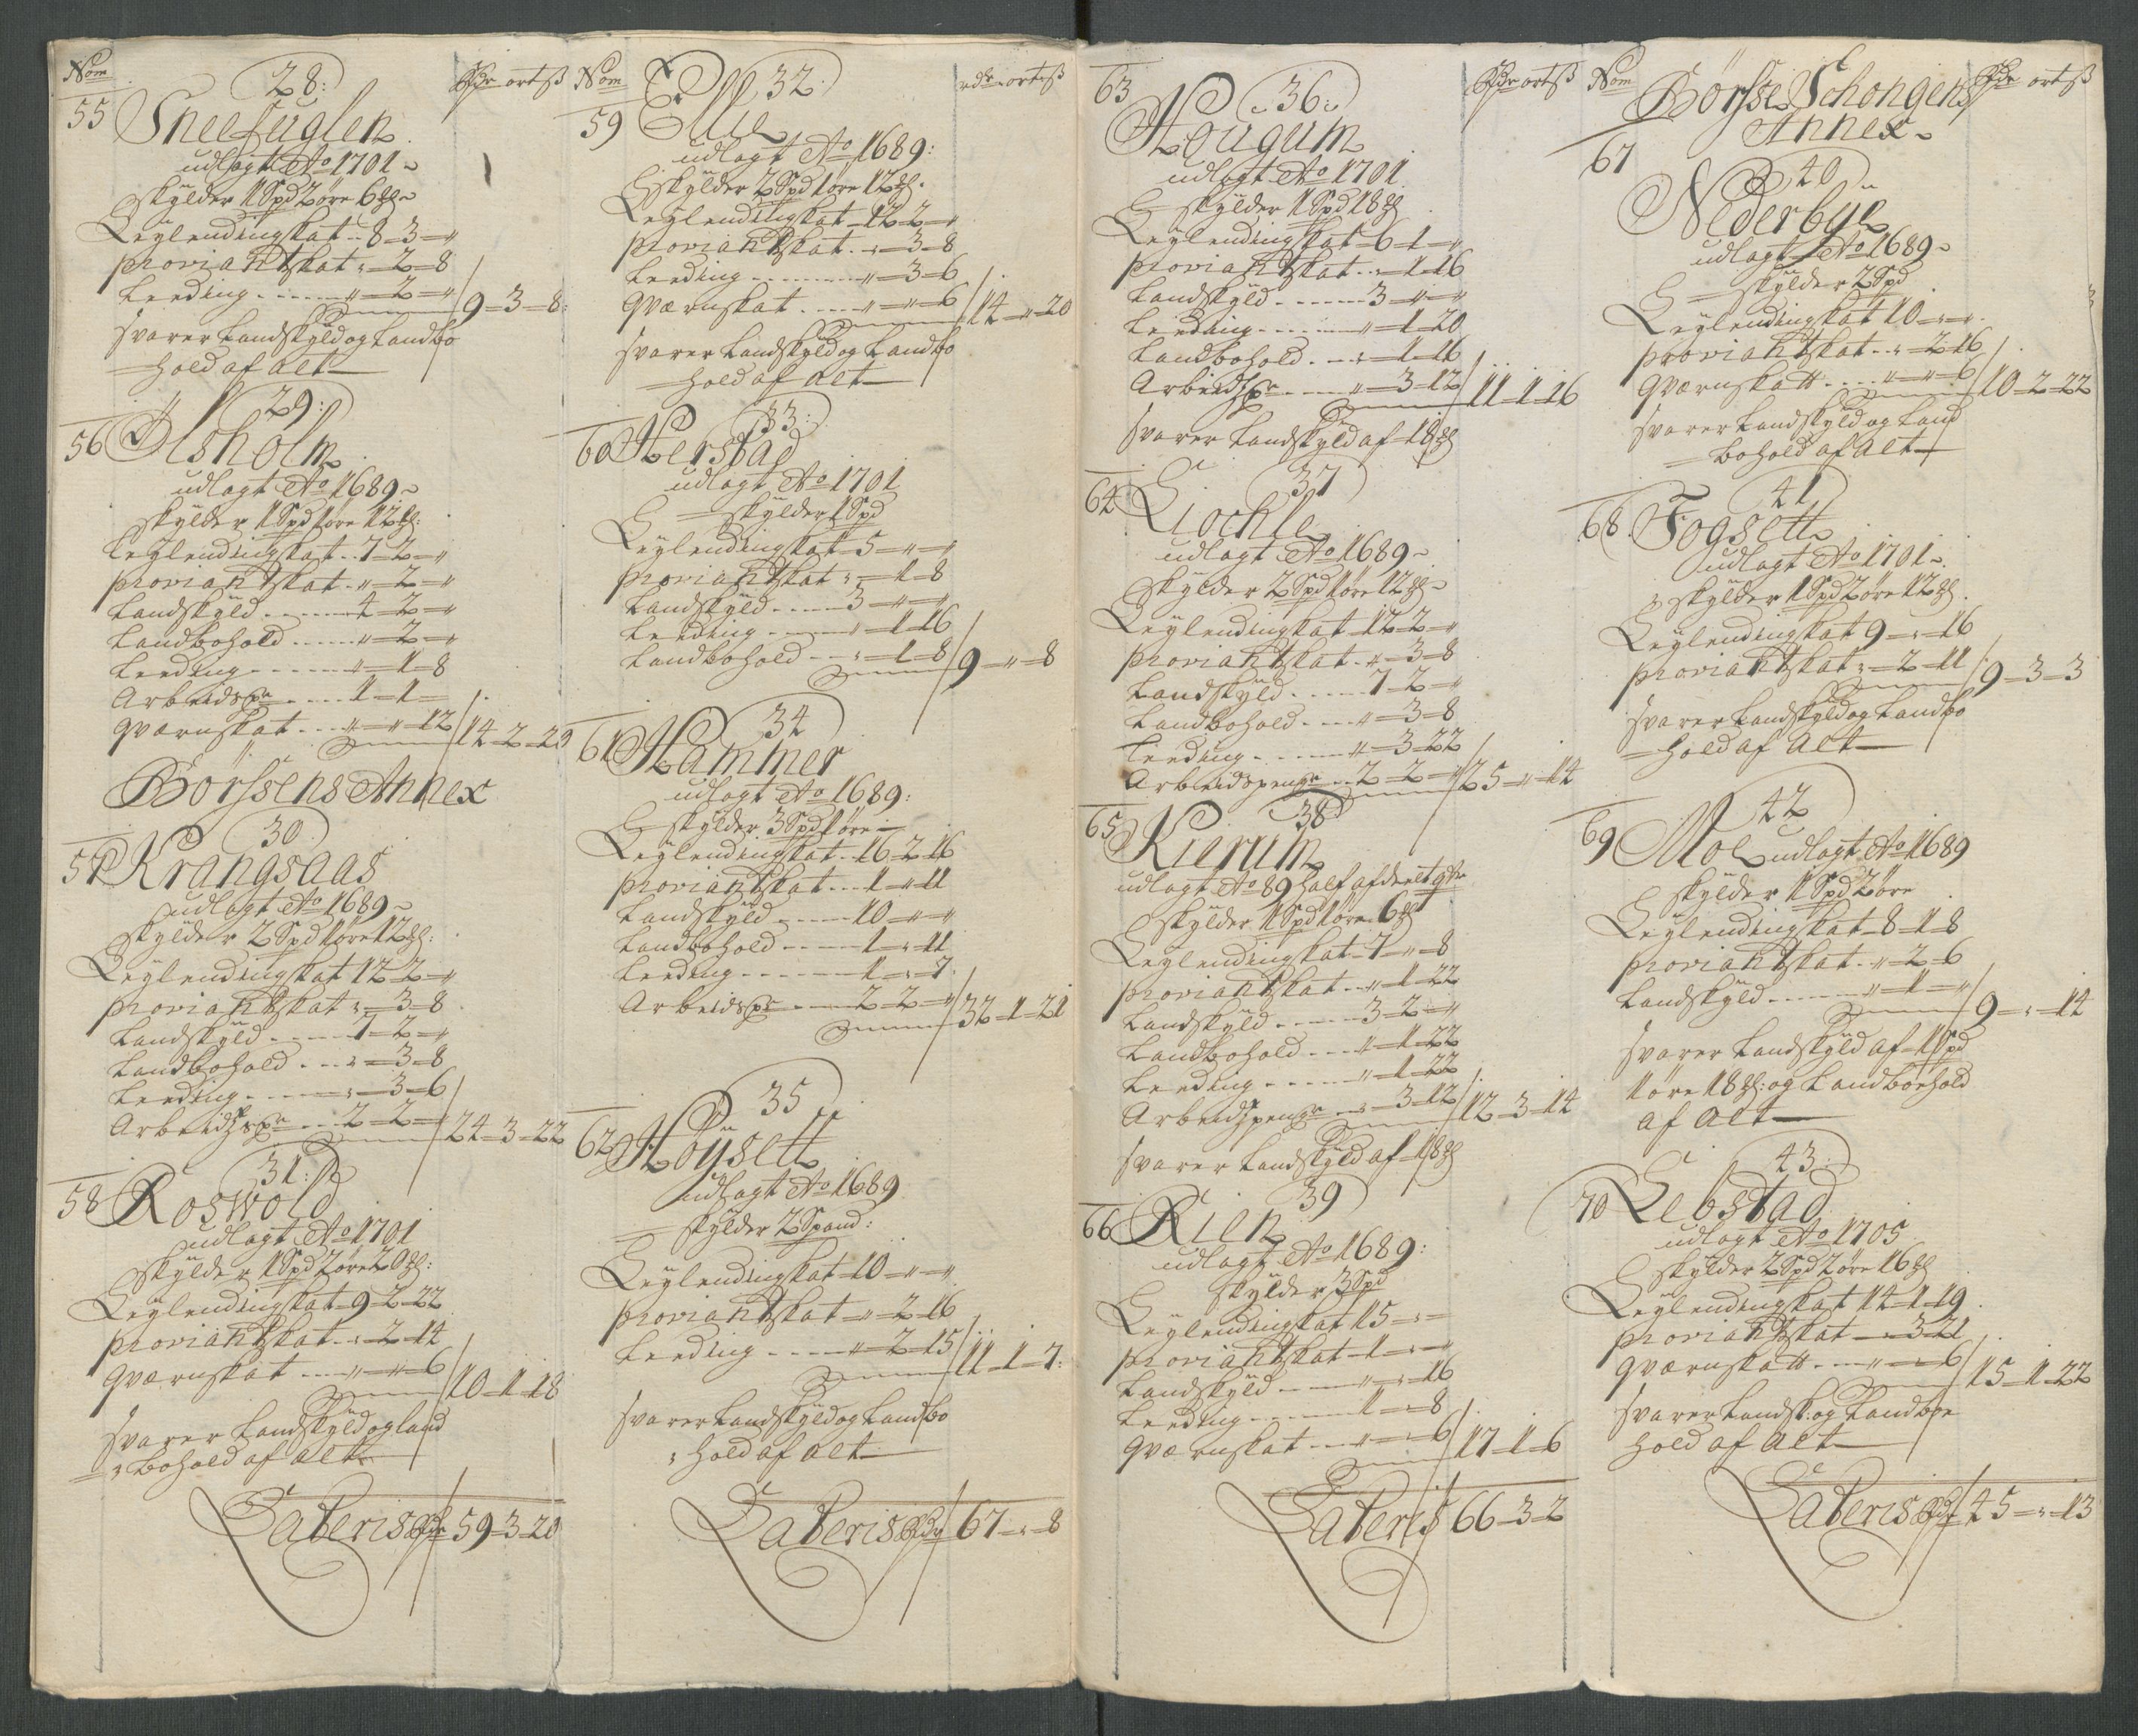 Nom
28:
Rdr ort ß
55 Sneefuglen
udlagt Ao 1701
skylder 1 Spd 2 öre 6 ₰
Leÿlendingskat 8–3–"
proviantskat "–2–8
Leeding "–2–" 9–3–8:
svarer Landskÿld og Landbo
hold af alt
29:
56 Ilsholm
udlagt Ao 1689
skÿlder 1 Spd 1 öre 12 ₰:
Leÿlendingskat 7–2–"
proviantskat "–2–"
Landskÿld 4–2–"
Landbohold "–2–"
Leeding "–1–8
Arbeidspe 1–1–
qværnskat "–"–12 14–2–20
Börssens Annex
30
57 Krangsaas
udlagt Ao 1689
skÿlder 2 Spd 1 öre 12 ₰:
Leÿlendingskat 12–2–"
proviantskat "–3–8
Landskÿld 7–2–"
Landbohold "–3–8
Leeding "–3–6
Arbeidspe 2–2–" 24–3–22
31:
58 Roswold
udlagt Ao 1701
skÿlder 1 Spd 2 öre 20 ₰:
Leÿlendingskat 9–2–22
proviantskat "–2–14
qværnskat "–"–6 10–1–18
svarer Landskÿld og land
bohold af alt
Lateris Rdr 59–3–20
Nom
32
rdr ort ß
59
udlagt Ao 1689:
skÿlder 2 Spd 1 öre 12 ₰.
Leÿlendingskat 12–2–"
proviantskat "–3–8
Leeding "–3–6
qværnskat "–"–6 14–"–20
svarer Landskÿld og Landbo
hold af alt
33:
60 Herstad
udlagt Ao 1701
skÿlder 1 Spd
Leÿlendingskat 5–"–"
proviantskat "–1–8
Landskÿld 3–"–"
Leeding "–1–16
Landbohold "–1–8 9–"–8
34
61 Hammer
udlagt Ao 1689:
skÿlder 3 Spd 1 öre
Leÿlendingskat 16–2–16
proviantskat 1–"–11
Landskÿld 10–"–"
Landbohold 1–"–11
Leeding 1–"–7
Arbeidspe 2–2–" 32–1–21
35
62 Höÿsett
udlagt Ao 1689
skÿlder 2 Spand:
Leÿlendingskat 10–"–"
proviantskat "–2–16
Leeding "–2–15 11–1–7:
svarer Landskÿld og Landbo
hold af alt
Lateris Rdr 67–"–8
63
36
Rdr ort ß
Hougum
udlagt Ao 1701
skÿlder 1 Spd 18 ₰
Leÿlendingskat 6–1–"
proviantskat "–1–16
Landskÿld 3–"–"
Leeding "–1–20
Landbohold "–1–16
Arbeidspe "–3–12 11–1–16
svarer Landskÿld af 18 ₰
37
64
udlagt Ao 1689
skÿlder 2 Spd 1 öre 12 ₰
Leÿlendingskat 12–2–"
proviantskat "–3–8
Landskÿld 7–2–"
Landbohold "–3–8
Leeding "–3–22
Arbeidspenge 2–2–" 25–"–14
38
65 Kierum
udlagt Ao 89 half afdeelt gdr
skÿlder 1 Spd 1 öre 6 ₰
Leÿlendingskat 7–"–8
proviantskat "–1–22
Landskÿld 3–2–"
Landbohold "–1–22
Leeding "–1–22
Arbeidspenge "–3–12 12–3–14
svarer Landskÿld af 18 ₰
39
66 Rien
udlagt Ao 1689:
skÿlder 3 Spd
Leÿlendingskat 15–"–
proviantskat 1–"–"
Landskÿld "–"–16
Leeding 1–"–8
qværnskat "–"–6 17–1–6
Lateris 66–3–2
Nom
Rdr ort ß
Börsse Schongens
Annex
67
40
Nederbÿe
udlagt Ao 1689
skÿlder 2 Spd
Leÿlendingskat 10–"–"
proviantskat "–2–16
qværnskatt "–"–6 10–2–22
svarer Landskÿld og Land
bohold af Alt
41
68 Fogsett
udlagt Ao 1701
skÿlder 1 Spd 2 öre 12 ₰
Leÿlendingskat 9–"–16
proviantskat "–2–11 9–3–3
svarer Landskÿld og Landbo
hold af Alt
42
69 Moe udlagt Ao 1689
skÿlder 1 Spd 2 öre
Leÿlendingskat 8–1–8
proviantskat "–2–6
Landskÿld "–1–" 9–"–14
svarer Landskÿld af 1 Spd
1 öre 18 ₰: og Landboehold
af Alt
43:
70 Lebstad
udlagt Ao 1705
skÿlder 2 Spd 2 öre 16 ₰
Leÿlendingskat 14–1–19
proviantskat "–3–21
qværnskatt "–"–6 15–1–22
svarer Landsk: og Landboe
hold af Alt
Lateris Rdr 45–"–13